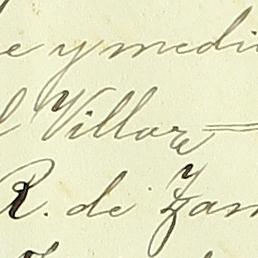 e y medi
l Villar =
R. de Zam